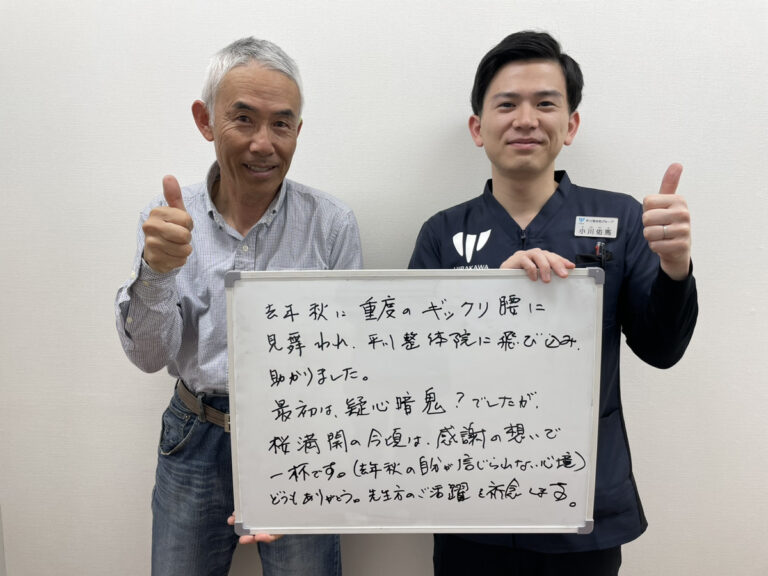 HIRAKAWA
小川佑馬
去年秋に重度のギックリ腰に
見舞われ、平川整体院に飛び込み、
助かりました。
最初は、疑心暗鬼?でしたが、
桜満開の今頃は、感謝の想いで
一杯です。(去年秋の自分が信じられない心境)
どうもありがとう。先生方のご活躍を祈念します。